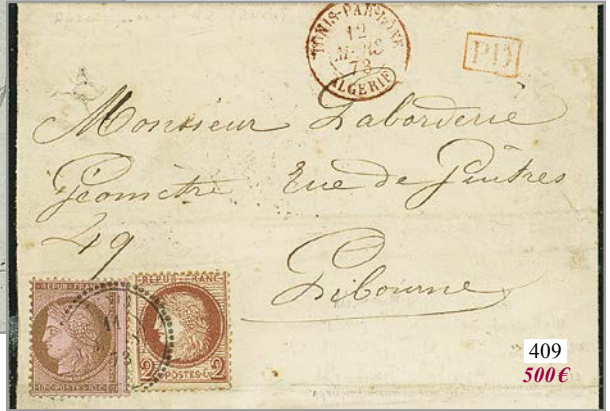 TUNIS-PAR-BÔNE
12
MARS
73
ALGERIE
PD
Monsieur Laborderie
Géomètre Rue de Peintres
49
Libourne
REPUB FRANC
REPUB FRANC
11
73
10 C. POSTES 10 C.
2 POSTES 2
409
500 €